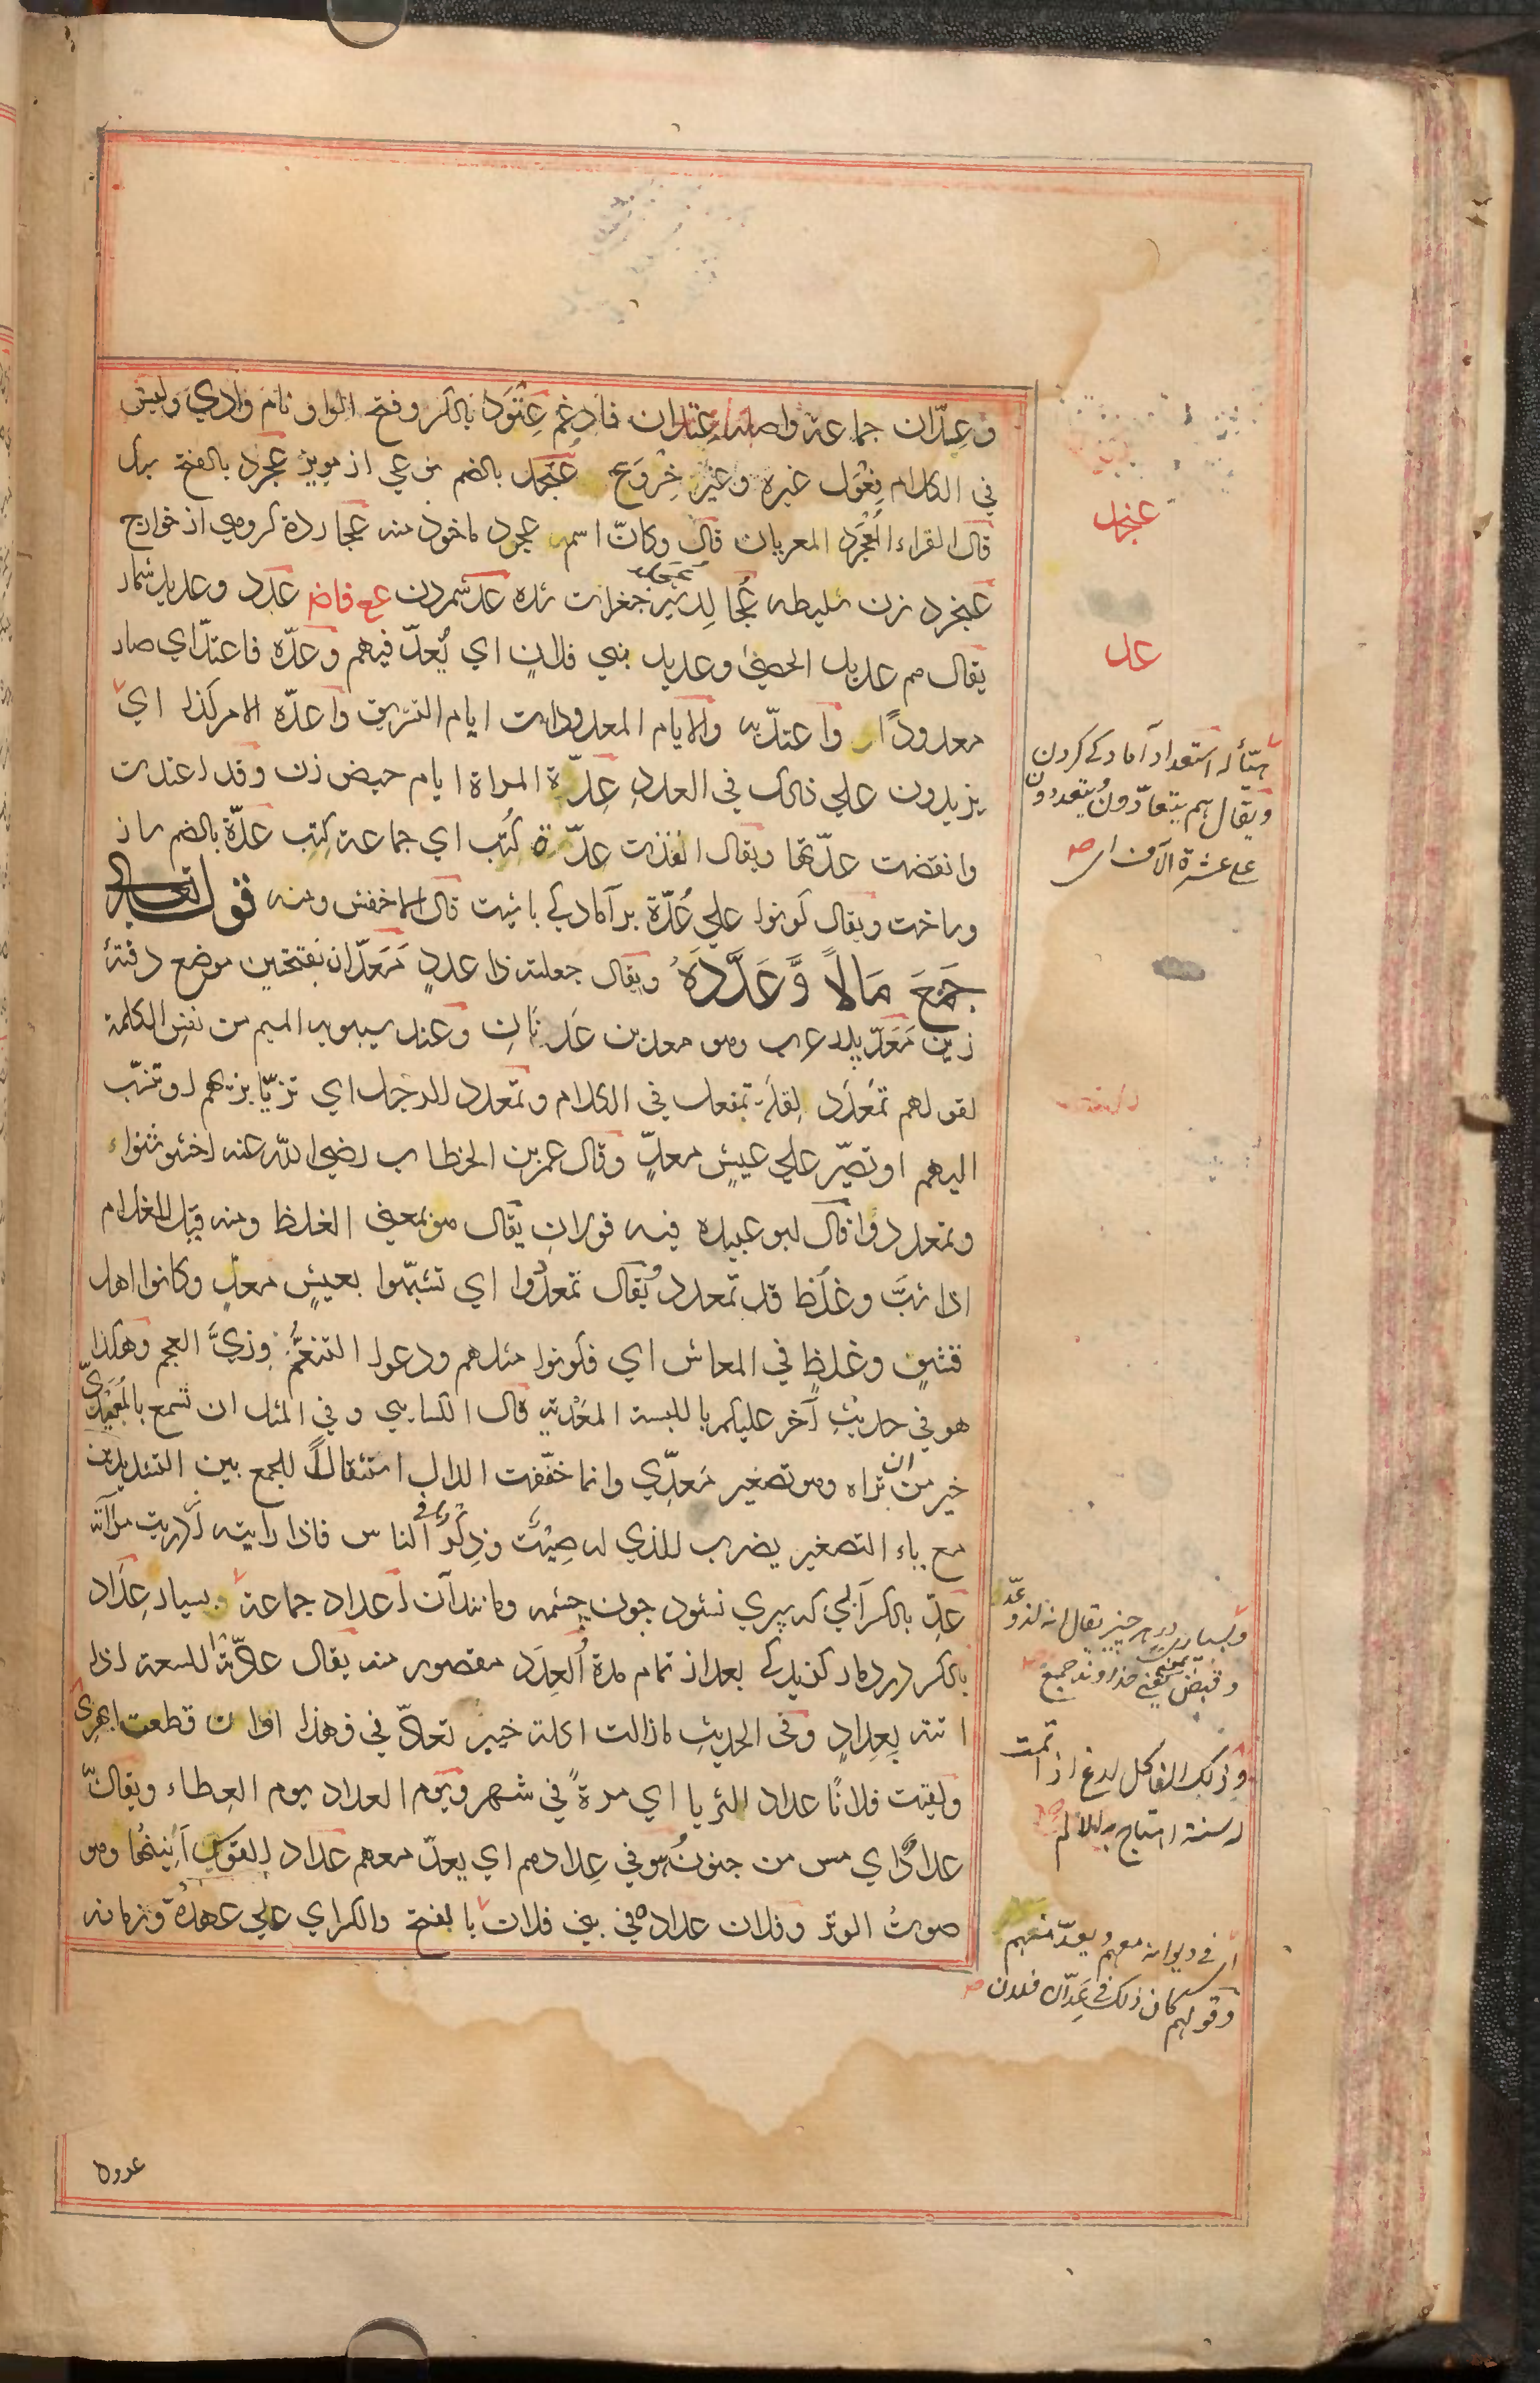 وعِدّان جماعة واصله عِتدان فادغم عِتْوَد بالكسر وفتح الواو نام وادي وليس
في الكلام فِعْوَل غيره وغير خِرْوَع عنجد بالضم نوعي از مويز عجرد بالفتح برك
قال الفراء المُعَجْرَد العريان قال وكانّ اسم عجرد ماخوذ منه عجاردة كروهي از خوارج
عنجرد زن سليطه عُجالِد شير جغرات شده عدّ شمردن ع ف اض عدد وعديد شمار
يقال هم عديد الحصى وعديد بني فلانٍ اي يُعدّ فيهم وعدّه فاعتدّ اي صار
معدودًا واعتدّ به والايام المعدودات ايام التشريق واعدّه الامر كذا اي
يزيدون علي ذلك في العدد عِدّة المراة ايام حيض زن وقد اعتدت
وانقضت عدّتها ويقال انفذت عدّة كُتُب اي جماعة كتب عدّة بالضم ساز
وساخت ويقال كونوا علي عُدّة بر آمادكي باشيت قال الاخفش ومنه قوله تعالي
جَمَعَ مَالاً وَّعَدَّدَهُ ويقال جعلته ذا عددٍ مَعَدّان بفتحتين موضع دفتهٔ
زين مَعَدّ پدر عرب وهو معد بن عَدنَانِ وعند سيبويه الميم من نفس الكلمة
لقولهم تَمَعْدَد لقلة تمفعل في الكلام وتمعدد للرجل اي تزيّا بزيهم او تنسّب
اليهم او تصبّر علي عيشٍ معدٍّ وقال عمر بن الخطاب رضي الله عنه اخشوشنوا
وتمعددوا قال ابو عبيده فيه قولان يقال هو بمعني الغلظ ومنه قيل للغلام
اذا شبّ وغلُظ قد تمعدد ويُقال تمعددُوا اي تشبّهوا بعيشٍ معدٍّ وكانوا اهل
قشفٍ وغلظٍ في المعاش اي فكونوا مثلهم ودعوا التنعُّمَ وزيَّ العجم وهكذا
هو في حديثٍ آخر عليكم باللبسة المعَدّية قال الكسايي وفي المثل ان تسمع بالمُعَيْدي
خير من ان تراه وهو تصغير مَعدِّي وانما خفّفت الدال استثقالاً للجمع بين التشديدتين
مع ياء التصغير يضرب للذي له صِيْتٌ وذِكْرٌ في الناس فاذا رايته ازدريت مرآته
عِدّ بالكسر آبي كه سپري نشود جون چشمه ومانند آن اعداد جماعة وبسيار عِدَاد
بالكسر درد مار كزيدكي بعد از تمام مدة العِدَد مقصور منه يقال عادّته اللسعة اذا
اتته بِعِدادٍ وفي الحديث ما زالت اكلة خيبر تعادّني فهذا اوان قطعت ابهري
ولقيت فلانًا عداد الثريا اي مرةً في شهر ويوم العداد يوم العطاء ويقال بّه
عدادٌ اي مس من جنون هُو في عِدادهم اي يعدّ معهم عداد القوس اَنِينُها وهو
صوتُ الوتر وفلان عداده في بني فلان بالفتح والكسر اي علي عهده وزمانه
عنجد
عد
هيّأ له استعداد آمادكي كردن
ويقال هم يتعادّون ويتعددون
علي عشرة آلاف اي صح
وبسياري در هر چيز يقال انه لذو عدّ
وقبص بمعني خداوند جميع
وذلك الفاكل لدغ اذا تمت
له سنة اهتاج به الالم صح
اي في ديوانه معهم ويعدّ منهم
وقولهم كان ذلك في عِدّان فلان صح
عدوه